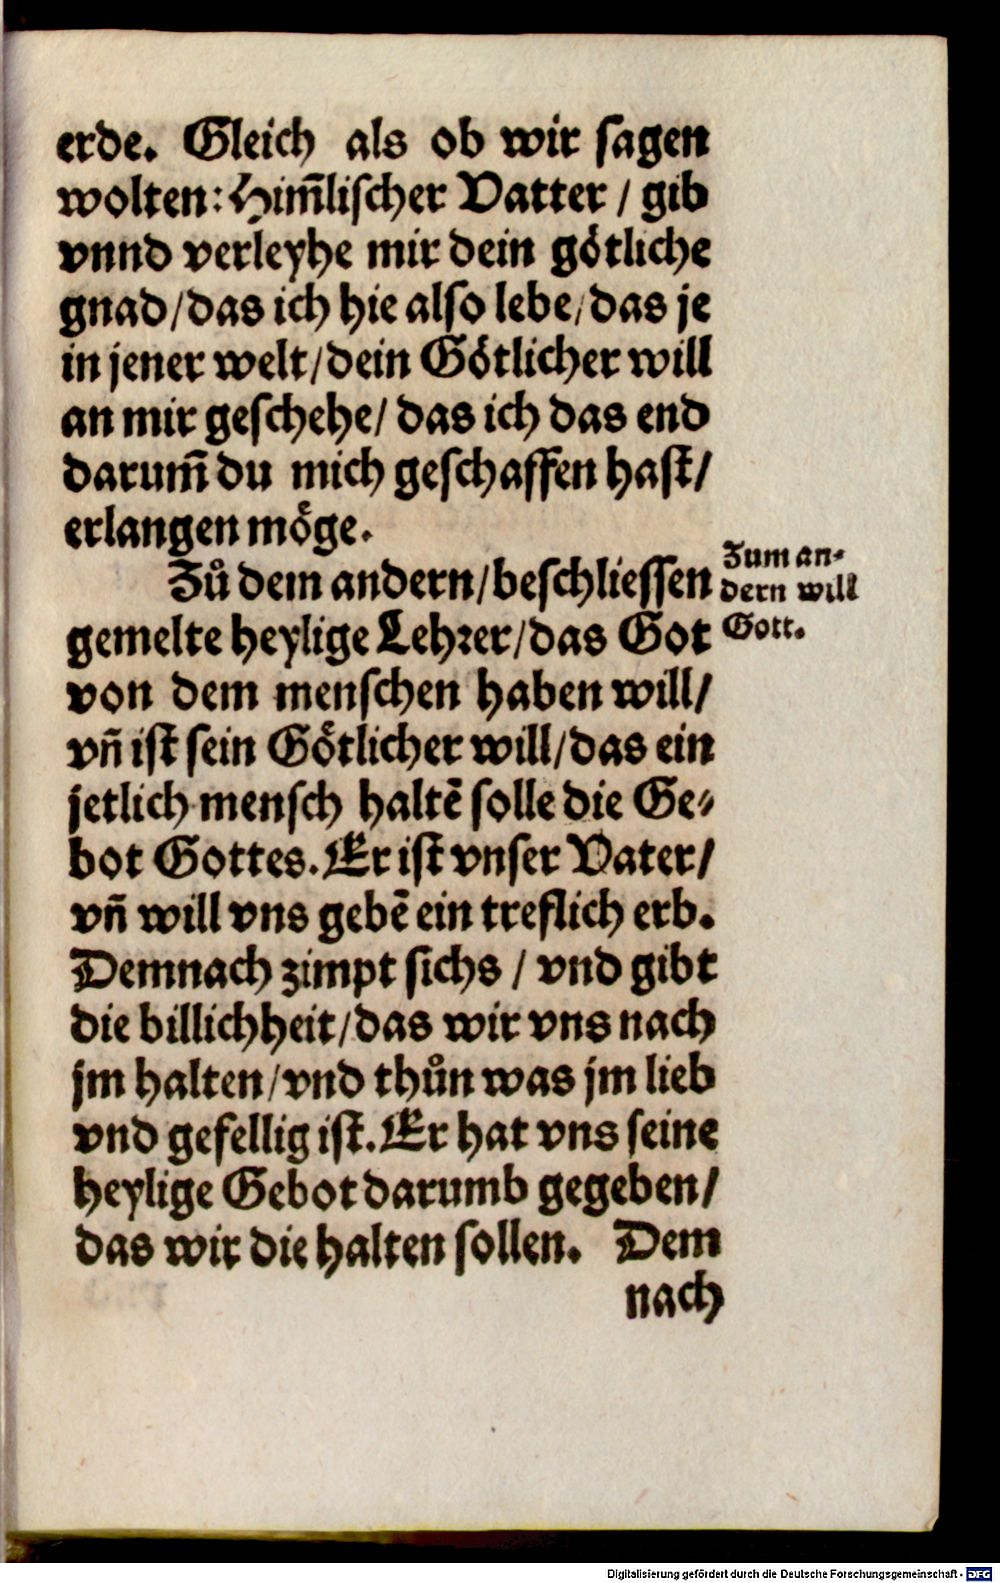 erde. Gleich als ob wir sagen
wolten: Him̃lischer Vatter / gib
vnnd verleyhe mir dein goͤtliche
gnad/das ich hie also lebe/das je
in jener welt/dein Goͤtlicher will
an mir geschehe/ das ich das end
darum̃ du mich geschaffen hast/
erlangen moͤge.
Zů dem andern/beschliessen
gemelte heylige Lehꝛer/das Got
von dem menschen haben will/
vñ ist sein Goͤtlicher will/das ein
jetlich mensch haltẽ solle die Ge⸗
bot Gottes. Er ist vnser Vater/
vñ will vns gebẽ ein treflich erb.
Demnach zimpt sichs / vnd gibt
die billichheit/das wir vns nach
jm halten/vnd thůn was jm lieb
vnd gefellig ist. Er hat vns seine
heylige Gebot darumb gegeben/
das wir die halten sollen. Dem
nach
Zum an⸗
dern will
Gott.
Digitalisierung gefördert durch die Deutsche Forschungsgemeinschaft - DFG